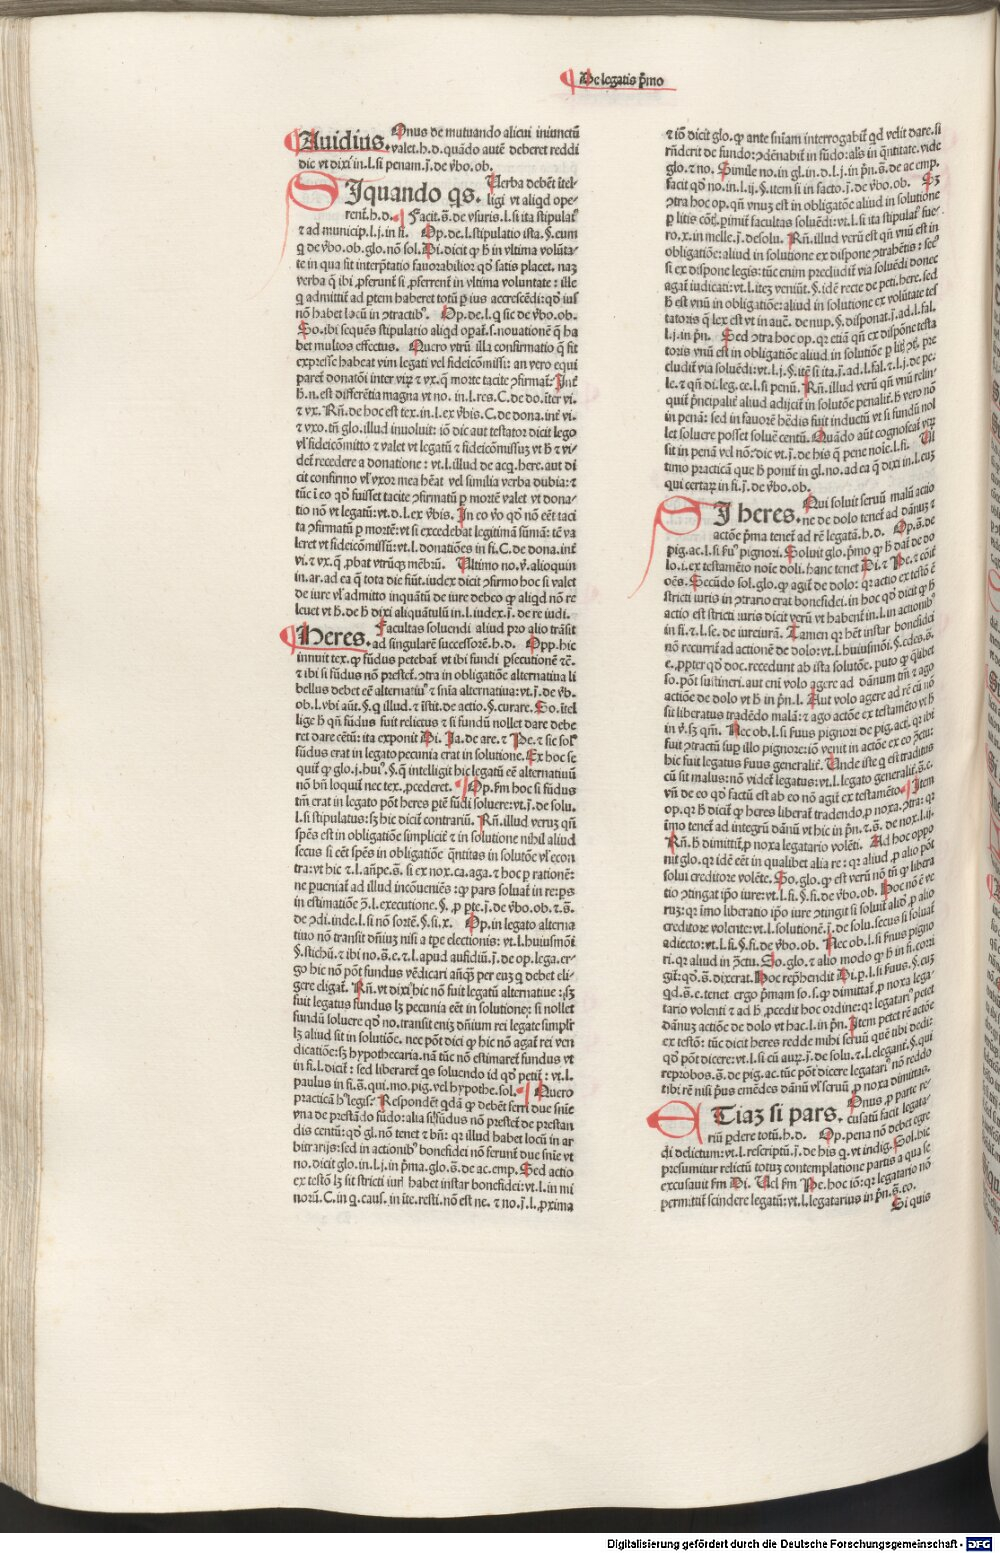 De legatis p̄mo
Auidius. Onus de mutuando alicui iniunctū
valet.h.d. quādo autē deberet reddi
dic vt dixi in.l.si penam.j̄.de v̄bo.ob.
SIquando qs. Uerba debēt ītel-
ligi vt aliqd ope-
rent̄.h.d. Facit.s̄.de vsuris.l.si ita stipulat⁹
⁊ ad municip.l.j.in fi. Op.de.l.stipulatio ista.§.cum
q̄ de v̄bo.ob.glo.nō sol. Di.dicit ꝙ hͦ in vltima volūta-
te in qua sit interp̄tatio fauorabilior qd̓ satis placet. naꝫ
verba q̄ ibi ꝓferunt̄ si ꝓferrent̄ in vltima voluntate : ille
q̄ admittit̄ ad ptem haberet totū ꝑ ius accrescēdi: qd̓ ius
nō habet locū in ꝯtractib⁹. Op.de.l.q̄ sic de v̄bo.ob.
So.ibi sequēs stipulatio aliqd opat̄.s.nouationē q̄ ha
bet multos effectus. Quero vtrū illa confirmatio q̄ fit
expresse habeat vim legati vel fideicōmissi: an vero equi
paret̄ donatōi inter virꝝ ⁊ vx.q̄ morte tacite ꝯfirmat̄. Int̄
h̄.n.est differētia magna vt no. in.l.res.C.de do.īter vi.
⁊ vx. Rn̄.de hoc est tex.in.l.ex v̄bis.C.de dona.int̄ vi.
⁊ vxo.tn̄ glo.illud inuoluit: iō dic aut testator dicit lego
vl̓ fideicōmitto ⁊ valet vt legatū ⁊ fideicōmissuꝫ vt h̄ ⁊ vi-
det̄ recedere a donatione : vt.l.illud de acq.here. aut di
cit confirmo vl̓ vxor mea hēat vel similia verba dubia: ⁊
tūc ī eo qd̓ fuisset tacite ꝯfirmatū ꝑ mortē valet vt dona-
tio nō vt legatū: vt.d.l.ex v̄bis. In eo v̓o qd̓ nō eēt taci
ta ꝯfirmatū ꝑ mortē: vt si excedebat legitimā sūmā: tē va
leret vt fideicōmissū: vt.l.donatiōes in fi.C.de dona.int̄
vi.⁊ vx.q̄ ꝓbat vtrūqꝫ mēbrū. Ultimo no.v̓.alioquin
in.ar.ad ea q̄ tota die fiūt.iudex dicit ꝯfirmo hoc si valet
de iure vl̓ admitto inquātū de iure debeo ꝙ aliqd nō re
leuet vt h̄.de hͦ dixi aliquātulū in.l.iudex.j̄.de re iudi.
Heres. Facultas soluendi aliud pro alio trāsit
ad singularē successorē.h.d. Opp.hic
innuit tex.ꝙ fūdus petebat̄ vt ibi fundi ꝑsecutionē ⁊c̄.
⁊ ibi si fūdus nō prestet̄. ꝯtra in obligatiōe alternatiua li
bellus debet eē alternatiu⁹ ⁊ sn̄ia alternatiua: vt.j̄.de v̄b.
ob.l.vbi aūt.§.q̄ illud.⁊ īstit.de actio.§.curare. So.ītel
lige h̄ qn̄ fūdus fuit relictus ⁊ si fundū nollet dare debe
ret dare cētū: ita exponit Di. Ja.de are.⁊ Pe.⁊ sic sol⁹
fūdus erat in legato pecunia erat in solutione. Ex hoc se
quit̄ ꝙ glo.j.hui⁹.§.q̄ intelligit hic legatū eē alternatiuū
nō bn̄ loquit̄ nec tex.ꝓcederet. Op.sm̄ hoc si fūdus
tm̄ erat in legato pōt heres pʳtē fūdi soluere: vt.j̄.de solu.
l.si stipulatus: sꝫ hic dicit̄ contrariū. Rn̄.illud veruꝫ qn̄
spēs est in obligatiōe simplicit̄ ⁊ in solutione nihil aliud
secus si eēt spēs in obligatiōe q̄ntitas in solutōe vl̓ econ
tra: vt hic ⁊.l.an̄pe.s̄.si ex nox.ca.aga.⁊ hoc ꝑ rationē:
ne pueniat̄ ad illud incōueniēs : ꝙ pars soluat̄ in re:ps
in estimatiōe ꝯ̄.l.executione.§. ꝓ pte.j̄.de v̄bo.ob.⁊.s̄.
de ꝯdi.inde.l.si nō sortē.§.si.x. Op.in legato alterna
tiuo nō transit dn̄iuꝫ nisi a tp̄e electionis: vt.l.huiusmōi
§.stichū.⁊ ibi no.s̄.e.⁊.l.apud aufidiū.j̄.de op.lega.er-
go hic nō pōt fundus vēdicari an̄q̄ꝫ per euꝫ q̄ debet eli-
gere eligat̄. Rn̄.vt dixi hic nō fuit legatū alternatiue : sꝫ
fuit legatus fundus lꝫ pecunia eēt in solutione: si nollet
fundū soluere qd̓ no.transit eniꝫ dn̄ium rei legate simplr̄
lꝫ aliud sit in solutiōe. nec pōt dici ꝙ hic nō agat̄ rei ven
dicatiōe: sꝫ hypothecaria. nā tūc nō estimaret̄ fundus vt
in fi.l.dicit̄ : sed liberaret̄ qs soluendo id qd̓ petit̄ : vt.l.
paulus in fi.s̄.qui.mo.pig.vel hypothe.sol. Quero
practicā h⁹ legis. Respondēt qdā ꝙ debēt ferri due snīe
vna de prestādo fūdo: alia si fūdus nō prestet̄ de prestan
dis centū: qd̓ gl.nō tenet ⁊ bn̄: qꝛ illud habet locū in ar
bitrarijs: sed in actionib⁹ bonefidei nō ferunt̄ due snīe vt
no.dicit glo.in.l.j.in p̄ma.glo.s̄.de ac.emp. Sed actio
ex testō lꝫ sit stricti iur̄ habet instar bonefidei: vt.l.in mi
norū.C.in q̄.caus.in īte.resti.nō est ne.⁊ no.j̄.l.ꝓxima
⁊ iō dicit glo.ꝙ ante sn̄iam interrogabit̄ qd velit dare.si
rn̄derit de fundo: ꝯdēnabit̄ in fūdo: al̓s in q̄ntitate.vide
glo.⁊ no. Simile no.in gl.in.d.l.j.in p̄n.s̄.de ac emp.
facit qd̓ no.in.l.ij.§.item si in facto.j̄.de v̄bo.ob. Sꝫ
ꝯtra hoc op.qn̄ vnuꝫ est in obligatiōe aliud in solutione
p̄ litis cōt̄.ꝑimit̄ facultas soluēdi: vt.l.si ita stipulat⁹ fue
ro.x.in melle.j̄.desolu. Rn̄.illud verū est qn̄ vnū est in
obligatiōe: aliud in solutione ex dispone ꝯtrahētis : sec⁹
si ex dispone legis: tūc enim precludit̄ via soluēdi donec
agat̄ iudicati: vt.l.iteꝫ veniūt.§.idē recte de peti.here.sed
h̄ est vnū in obligatiōe: aliud in solutione ex volūtate tes
tatoris q̄ lex est vt in autē.de nup.§.disponat.j̄.ad.l.fal.
l.j.in p̄n. Sed ꝯtra hoc op.qꝛ etiā qn̄ ex dispōne testa
toris vnū est in obligatiōe aliud in solutōe p̄ litis ꝯt̄. pre
cludit̄ via soluēdi: vt.l.j.§.itē si ita.j̄.ad.l.fal.⁊.l.j.de pe.
le.⁊ qn̄ di.leg.ce.l.si penū. Rn̄.illud verū qn̄ vnū relin-
quit̄ p̄ncipalit̄ aliud adijcit̄ in solutōe penalit̄. h̄ vero nō
in penā: sed in fauorē hēdis fuit inductū vt si fundū nol
let soluere posset soluē centū. Quādo aūt cognoscat̄ vtꝝ
sit in penā vel nō: dic vt.j̄.de his q̄ pene noīe.l.fi. Ul
timo practicā que h̄ ponit̄ in gl.no.ad ea q̄ dixi in.l.euꝫ
qui certarꝫ in fi.j̄.de v̄bo.ob.
SI heres. Qui soluit seruū malū actio
ne de dolo tenet̄ ad dānuꝫ ⁊
actōe p̄ma tenet̄ ad rē legatā.h.d. Op.s̄.de
pig.ac.l.si fu⁹ pignori. Soluit glo.p̄mo ꝙ h̄ dat̄ de do
lo.i.ex testamēto noīe doli.hanc tenet Di.⁊ Pe.⁊ cōīt̄
oēs. Secūdo sol.glo.ꝙ agit̄ de dolo: qꝛ actio ex testō ē
stricti iuris in ꝯtrario erat bonefidei.in hoc qd̓ dicit ꝙ h̄
actio est stricti iuris dicit verū vt habent̄ in.l.in actionib⁹
in fi.⁊.l.se.de iurciurā. Tamen qꝛ hēt instar bonefidei
nō recurrit̄ ad actionē de dolo: vt.l.huiusmōi.§.edes.s̄.
e.ꝓpter qd̓ doc.recedunt ab ista solutōe. puto ꝙ q̄libet
so.pōt sustineri.aut eni volo agere ad dānum tm̄ ⁊ ago
actiōe de dolo vt h̄ in p̄n.l. Aut volo agere ad rē cū nō
sit liberatus tradēdo malā: ⁊ ago actōe ex testamēto vt h̄
in v̓.sꝫ qm̄. Nec ob.l.si fuus pignori de pig.act.qꝛ ibi
fuit ꝯtractū sup illo pignore: iō venit in actōe ex cōtctu:
hic fuit legatus fuus generalit̄. Unde iste q̄ est traditus
cū sit malus: nō videt̄ legatus: vt.l.legato generalit̄.s̄.e.
vn̄ de eo qd̓ factū est ab eo nō agit̄ ex testamēto. Item
op.qꝛ h̄ dicit̄ ꝙ heres liberat̄ tradendo.ꝓ noxa.ꝯtra: qꝛ
imo tenet̄ ad integrū dānū vt hic in p̄n.⁊.s̄.de nox.l.ij.
Rn̄.h̄ dimittit̄ ꝓ noxa legatario volēti. Ad hoc oppo
nit glo.qꝛ idē eēt in qualibet alia re : qꝛ aliud ꝓ alio pōt
solui creditore volēte. So.glo.ꝙ est verū nō tn̄ ꝙ libera
tio ꝯtingat ipō iure: vt.l.fi.§.fi.de v̄bo.ob. Hoc nō ē ve
ruꝫ: qꝛ imo liberatio ipō iure ꝯtingit si soluit̄ aliō ꝓ alio
creditore volente: vt.l.solutionē.j̄.de solu.secus si soluat̄
adiecto: vt.l.fi.§.fi.de v̄bo.ob. Nec ob.l.si fruus pigno
ri.qꝛ aliud in ꝯ̄ctu. So.glo.⁊ alio modo ꝙ h̄ in fi.corri
git̄: qd̓.s̄.dixerat. Hoc rep̄hendit Di.p̄.l.si fuus.§.euꝫ
qd.s̄.e.tenet ergo p̄mam so.s.ꝙ dimittat̄ ꝓ noxa lega-
tario volenti ⁊ ad h̄ ꝓcedit hoc ordine: qꝛ legatari⁹ petet
dānuꝫ actiōe de dolo vt hac.l.in p̄n. Item petet rē actōe
ex testō: tūc dicit heres redde mihi seruū quē tibi dedi:
qd̓ pōt dicere: vt.l.si cū auꝝ.j̄.de solu.⁊.l.elegant̄.§.qui
reprobos.s̄.de pig.ac.tūc pōt dicere legatari⁹ nō reddo
tibi rē nisi p̄us emēdes dānū vl̓ seruū ꝓ noxa dimittas.
ETiaꝫ si pars. Onus ꝓ parte re-
cusatū facit legata-
riū ꝑdere totū.h.d. Op.pena nō debet egre
di delictum: vt.l.rescriptū.j̄.de his q̄.vt indig. Sol.hic
presumitur relictū totuꝫ contemplatione partis a qua se
excusauit sm̄ Di. Uel sm̄ Pe.hoc iō: qꝛ legatario nō
permittit̄ scindere legatū: vt.l.legatarius in p̄n.s̄.eo.
Si quis
Digitalisierung gefördert durch die Deutsche Forschungsgemeinschaft - DFG